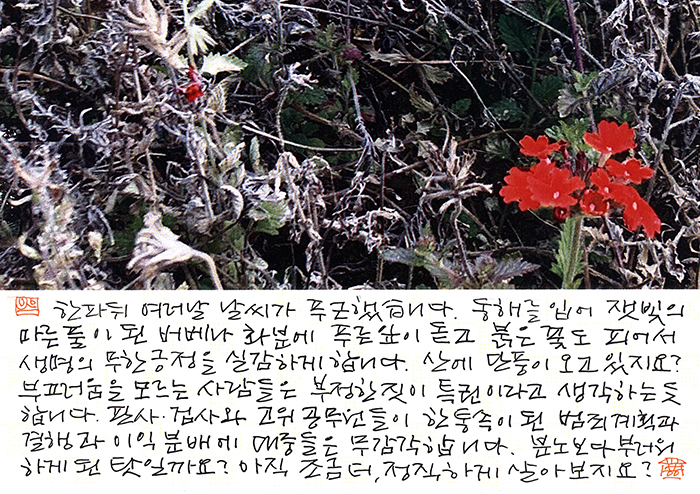 한파뒤 여러날 날씨가 푸근했습니다. 동해를 입어 잿빛의
마른풀이 된 버베나 화분에 푸른잎이 돋고 붉은 꽃도 피어서
생명의 무한긍정을 실감하게 합니다. 산에 단풍이 오고 있지요?
부끄러움을 모르는 사람들은 부정한짓이 특권이라고 생각하는듯
합니다. 판사·검사와 고위공무원들이 한통속이 된 범죄계획과
결행과 이익분배에 대중들은 무감각합니다. 분노보다 부러워
하게 된 탓일까요? 아직 조금 더, 정직하게 살아보지요?